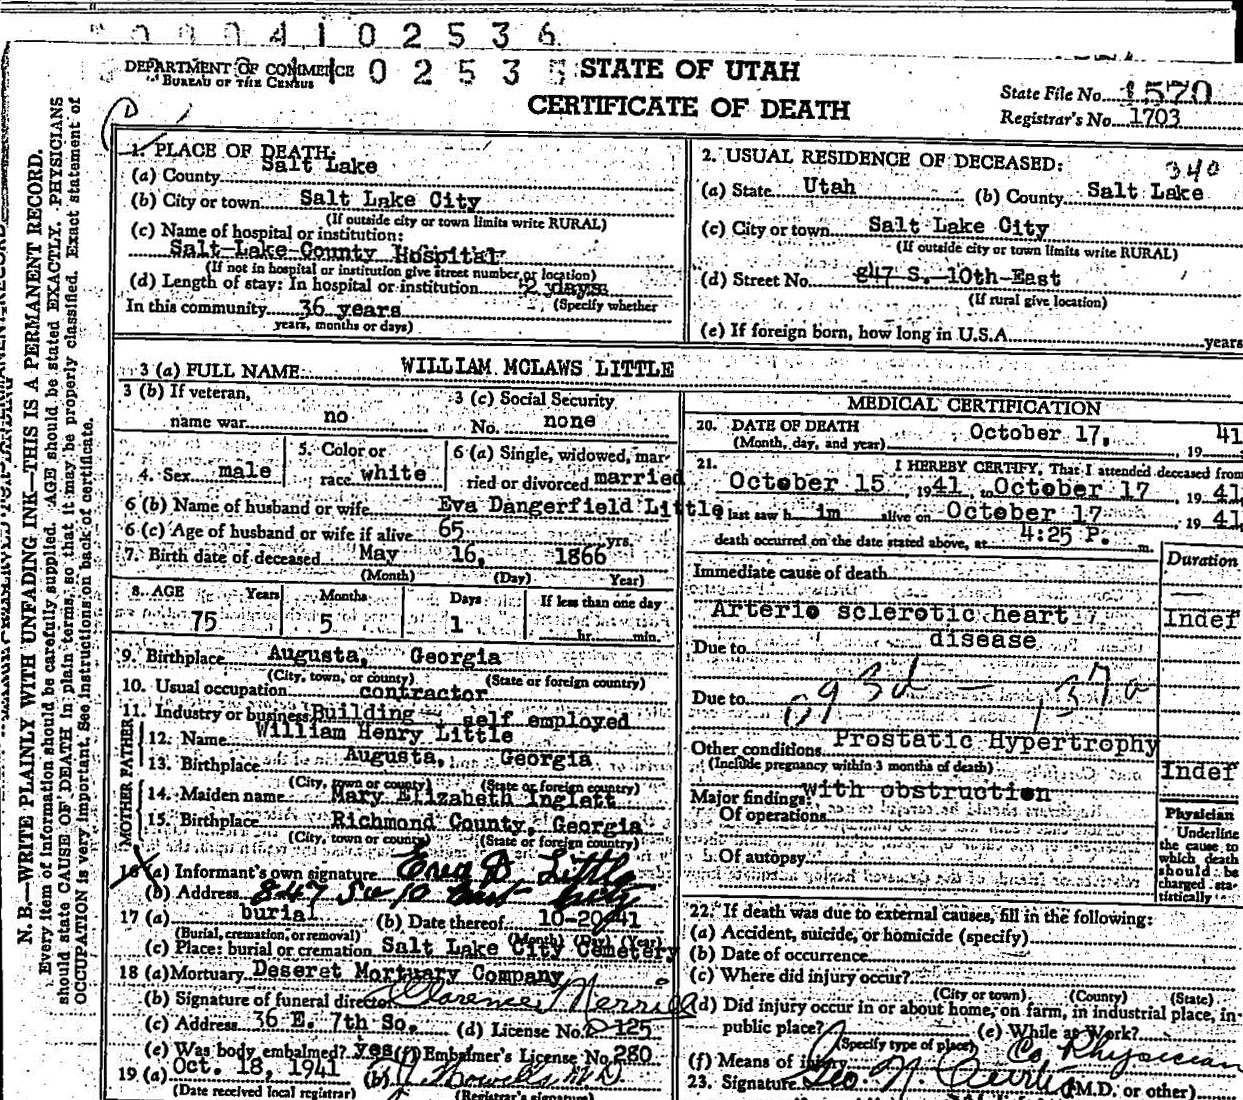 0004102536
DEPARTMENT OF COMMERCE
BUREAU OF THE CENSUS
02535
STATE OF UTAH
CERTIFICATE OF DEATH
State File No. 1570
Registrar's No. 1703
N. B.—WRITE PLAINLY WITH UNFADING INK—THIS IS A PERMANENT RECORD.
Every item of information should be carefully supplied. AGE should be stated EXACTLY. PHYSICIANS
should state CAUSE OF DEATH in plain terms, so that it may be properly classified. Exact statement of
OCCUPATION is very important. See instructions on back of certificate.
1. PLACE OF DEATH:
(a) County Salt Lake
(b) City or town Salt Lake City
(If outside city or town limits write RURAL)
(c) Name of hospital or institution:
Salt Lake County Hospital
(If not in hospital or institution give street number or location)
(d) Length of stay: In hospital or institution 2 days
(Specify whether
In this community 36 years
years, months or days)
2. USUAL RESIDENCE OF DECEASED:
340
(a) State Utah (b) County Salt Lake
(c) City or town Salt Lake City
(If outside city or town limits write RURAL)
(d) Street No. 847 S. 10th East
(If rural give location)
(e) If foreign born, how long in U.S.A. years
3 (a) FULL NAME: WILLIAM MCLAWS LITTLE
3 (b) If veteran,
name war no
3 (c) Social Security
No. none
4. Sex male
5. Color or
race white
6 (a) Single, widowed, mar-
ried or divorced married
6 (b) Name of husband or wife Eva Dangerfield Little
6 (c) Age of husband or wife if alive 65 yrs.
7. Birth date of deceased May 16, 1866
(Month) (Day) Year)
8. AGE Years Months Days If less than one day
75 5 1 hr. min.
9. Birthplace Augusta, Georgia
(City, town, or county) (State or foreign country)
10. Usual occupation contractor
11. Industry or business Building - self employed
FATHER
12. Name William Henry Little
13. Birthplace Augusta, Georgia
(City, town or county) (State or foreign country)
MOTHER
14. Maiden name Mary Elizabeth Inglett
15. Birthplace Richmond County, Georgia
(City, town or county) (State or foreign country)
16 (a) Informant's own signature Eva D Little
(b) Address 847 So 10 East City
17 (a) burial (b) Date thereof 10-20-41
(Burial, cremation, or removal) (Month) (Day) (Year)
(c) Place: burial or cremation Salt Lake City Cemetery
18 (a) Mortuary Deseret Mortuary Company
(b) Signature of funeral director Clarence Merrill
(c) Address 36 E. 7th So. (d) License No. 125
(e) Was body embalmed? yes (f) Embalmer's License No. 280
19 (a) Oct. 18, 1941 (b) M.D.
(Date received local registrar) (Registrar's signature)
MEDICAL CERTIFICATION
20. DATE OF DEATH
(Month, day, and year) October 17, 19 41
21. I HEREBY CERTIFY, That I attended deceased from
October 15, 1941, to October 17 19 41,
last saw h im alive on October 17 19 41
death occurred on the date stated above, at 4:25 P. m.
Duration
Immediate cause of death
Arterio sclerotic heart Indef
disease
Due to
Due to
093d — 137a
Other conditions Prostatic Hypertrophy
(Include pregnancy within 3 months of death) Indef
with obstruction
Major findings:
Of operations
Of autopsy
Physician
Underline
the cause to
which death
should be
charged sta-
tistically
22. If death was due to external causes, fill in the following:
(a) Accident, suicide, or homicide (specify)
(b) Date of occurrence
(c) Where did injury occur?
(City or town) (County) (State)
(d) Did injury occur in or about home, on farm, in industrial place, in-
public place? (e) While at Work?
(Specify type of place)
(f) Means of injury Co. Physician
23. Signature Geo. N. Curtis (M.D. or other)